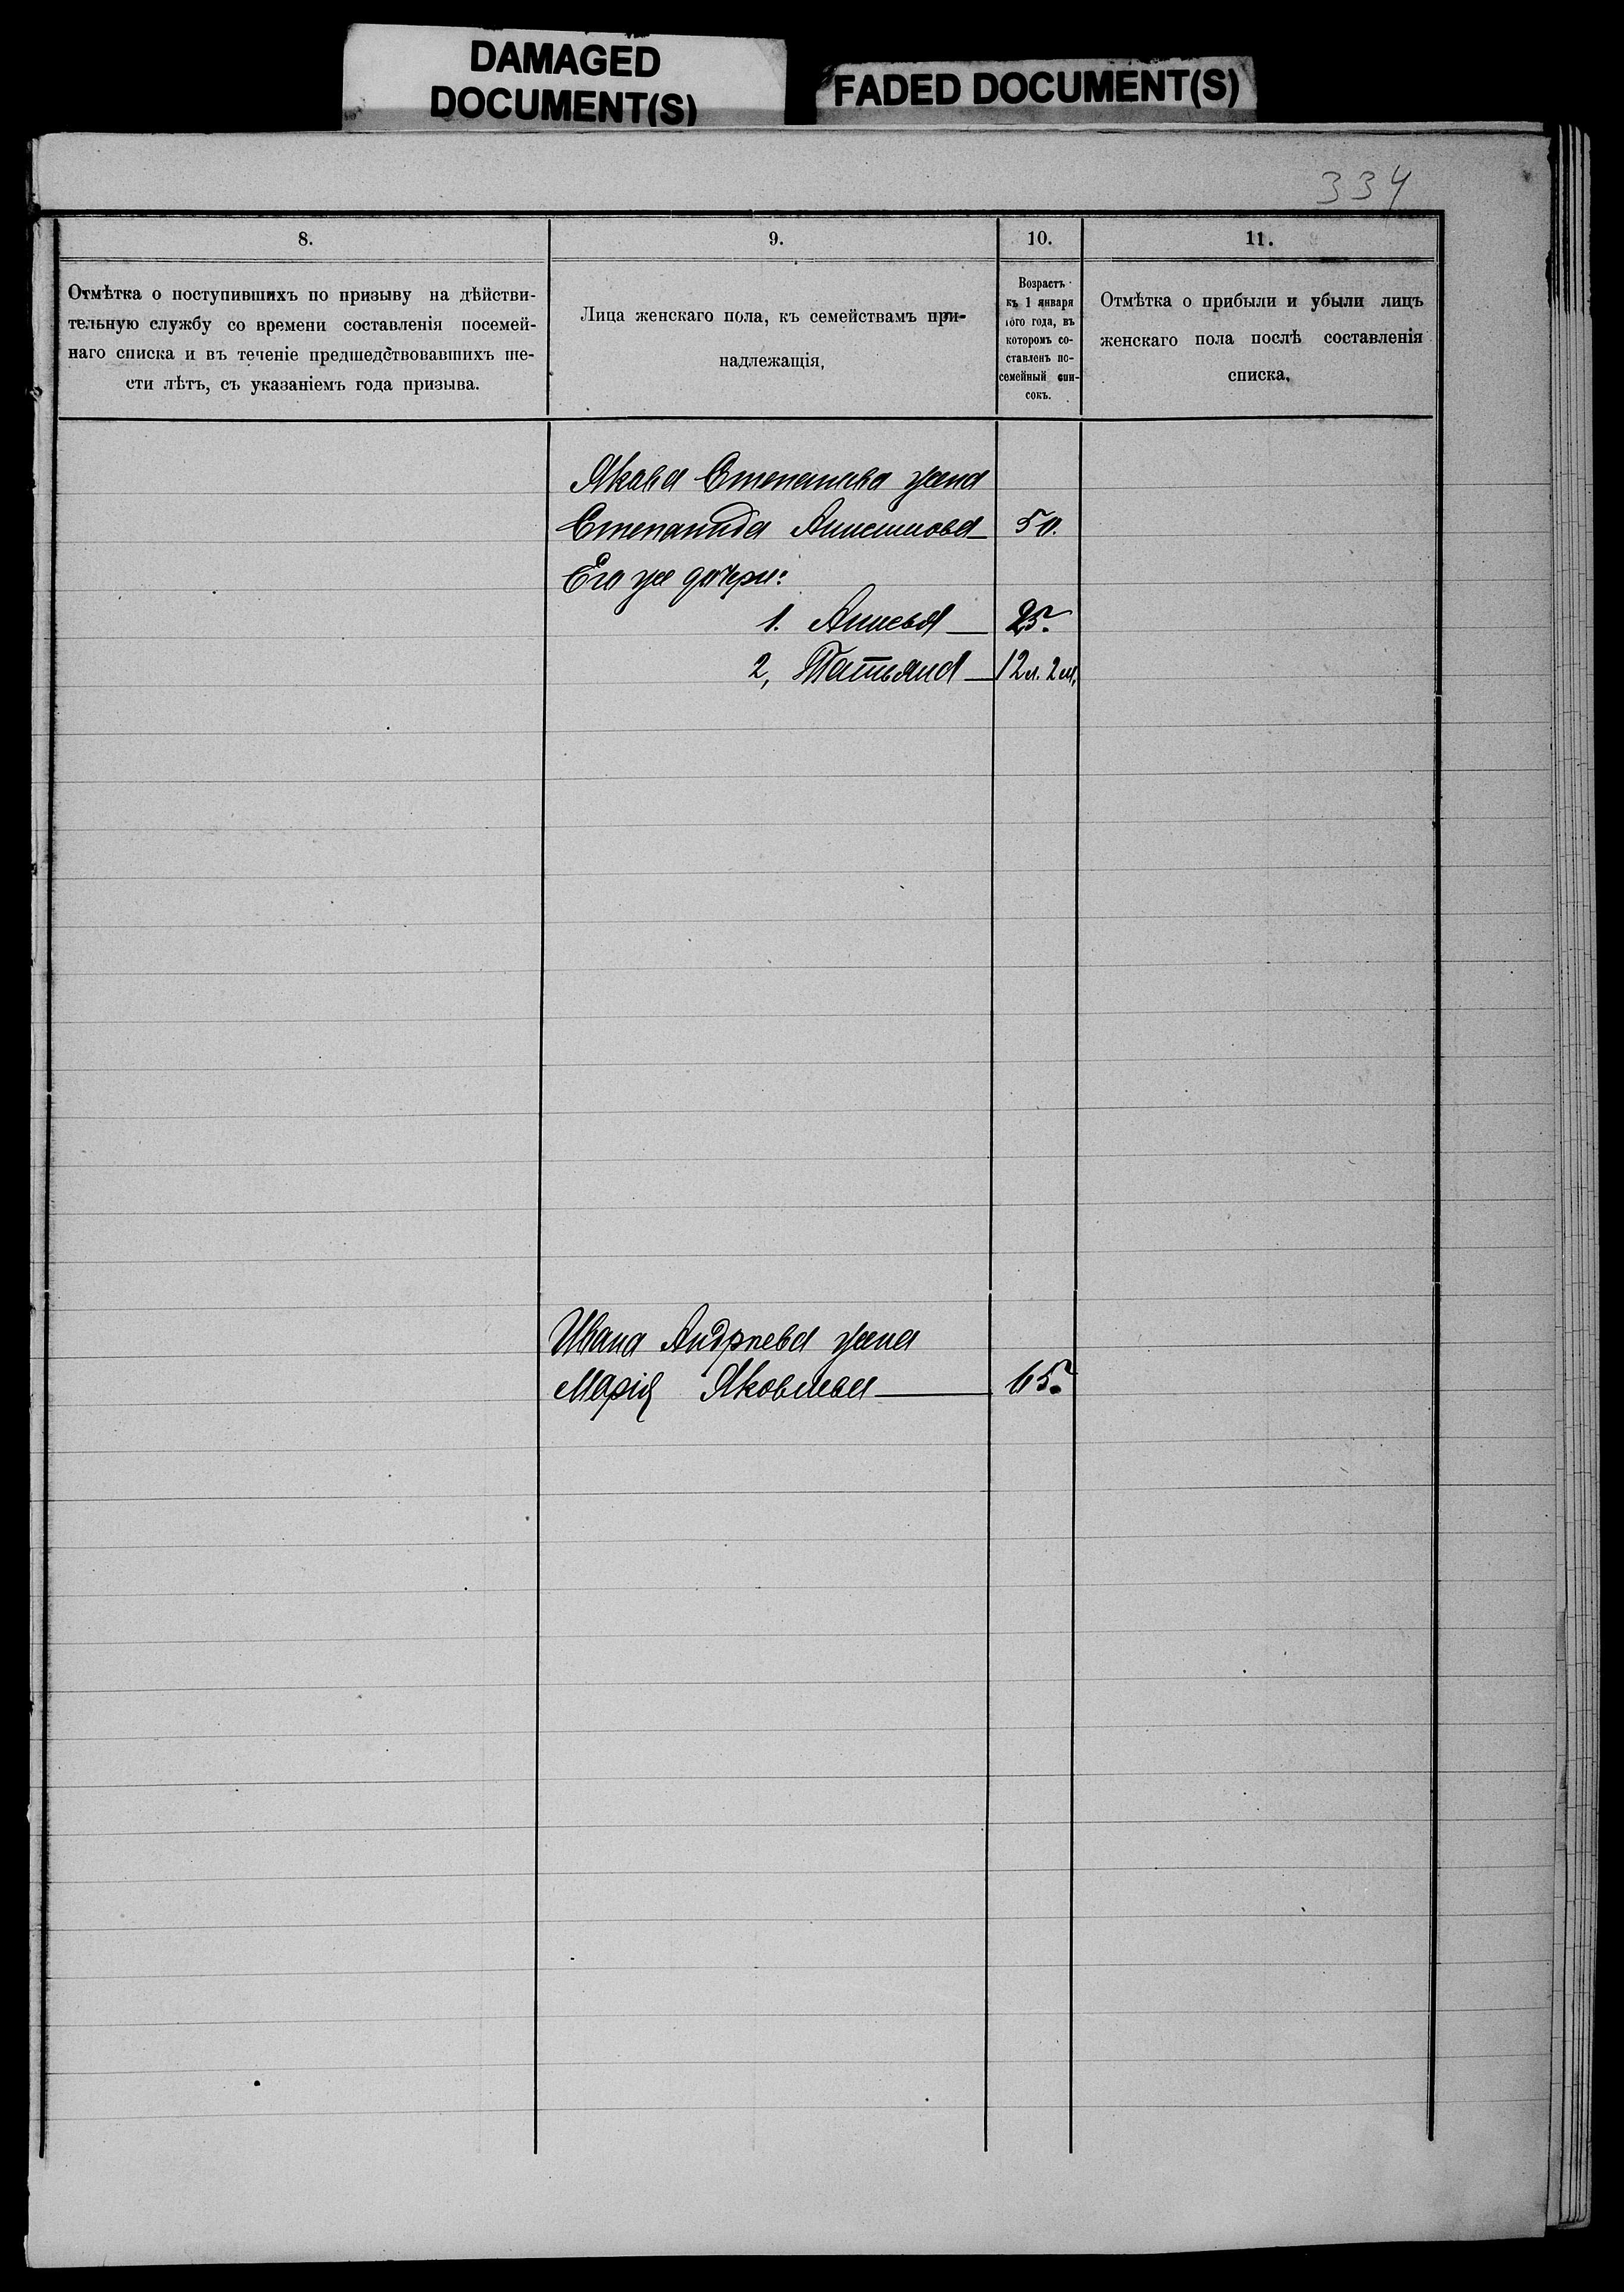 DAMAGED
DOCUMENT(S)
FADED DOCUMENT(S)
334
8.
9.
10.
11.
Отмѣтка о поступившихъ по призыву на дѣйстви-
тельную службу со времени составленія посемей-
наго списка и въ теченіе предшедствовавшихъ ше-
сти лѣтъ, съ указаніемъ года призыва.
Лица женскаго пола, къ семействамъ при-
надлежащія,
Возрастъ
къ 1 января
того года, въ
которомъ со-
ставленъ по-
семейный спи-
сокъ.
Отмѣтка о прибыли и убыли лицъ
женскаго пола послѣ составленія
списка.
Якова Степанова жена
Степанида Анисимова 50.
Его же дочери:
1. Анисья 25.
2, Татьяна 12 л. 2 м.
Ивана Андреева жена
Марія Яковлева 65.